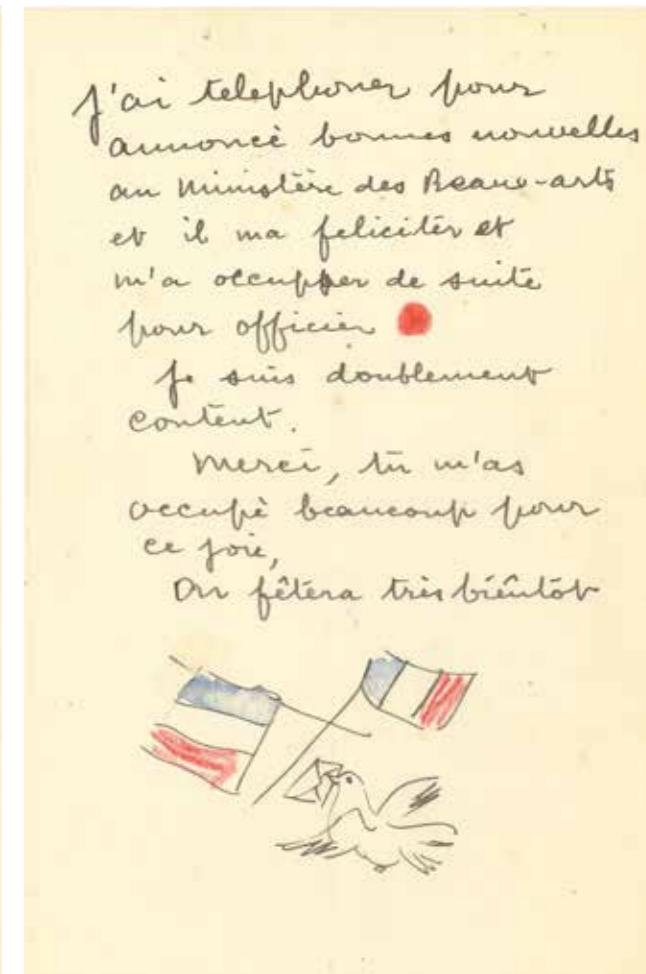 J'ai telephoner pour
annoncè bonnes nouvelles
au Ministère des Beaux-arts
et il ma feliciter et
m'a occupper de suite
pour officier
Je suis doublement
content.
Merci, tu m'as
occupè beaucoup pour
ce joie,
On fêtera très biêntôt